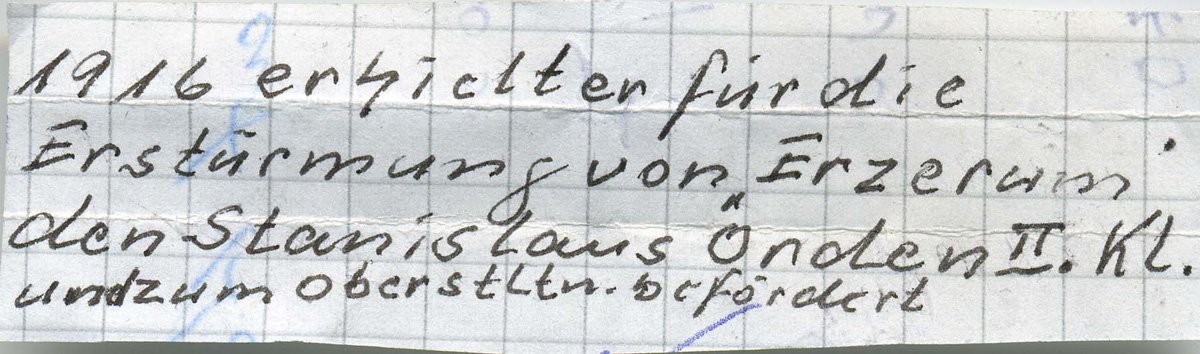 1916 erhielt er für die
Erstürmung von Erzerum
den Stanislaus Örden II. Kl.
und zum Oberstltn. befördert